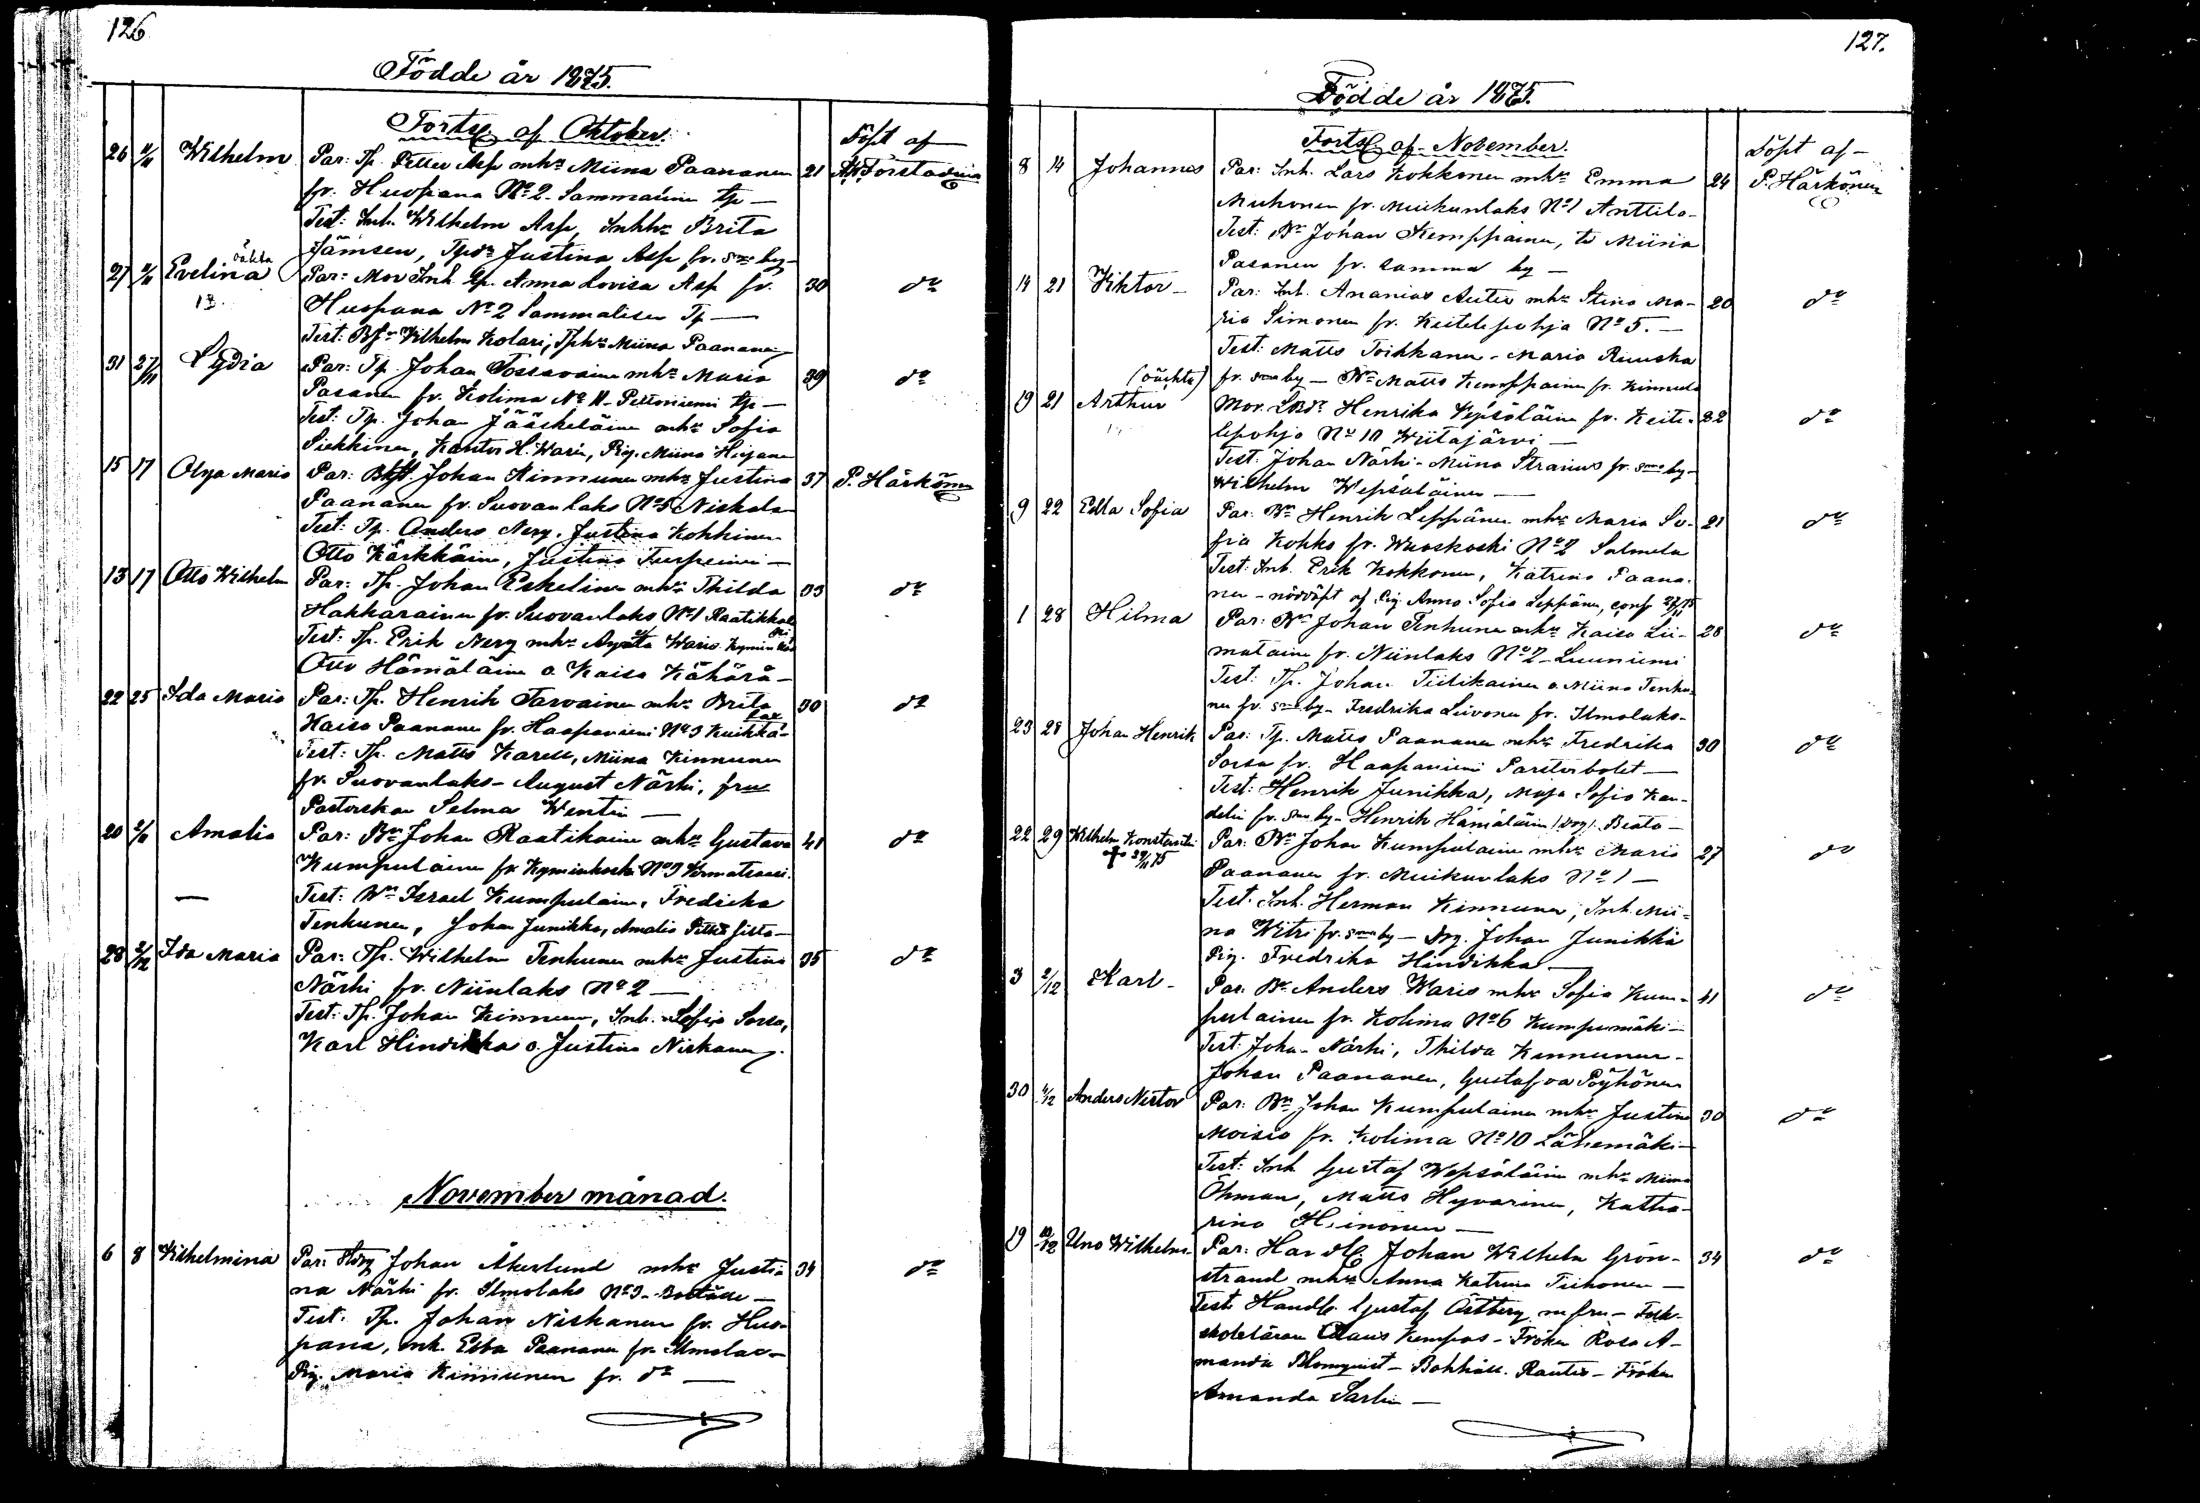 126
Födde år 1875.
Forts. af Oktober.
Döpt af
26 2/11 Wilhelm Par: Tp. Petter Asp mhu Miina Paananen 21
fr. Huopana No 2 Sammalinen tp —
Test: Inh. Wilhelm Asp, Inhhu Brita
Jämsen, Justina Asp fr. sma by —
27 Evelina oäkta Par: Mor Inh. Anna Lovisa Asp fr. 30 do
Huopana No 2 Sammalisen Tp —
Test: Wilhelm Kolari, Tphu Miina Paananen
31 27/11 Lydia Par: Tp. Johan Tossavainen mhu Maria 39 do
Pasanen fr. Kolima No 11 Peltoniemi tp —
Test: Tp. Johan Jääskeläinen mhu Sofia
Siekkinen, Kantor H. Warén, Pig. Miina
15 17 Olga Maria Par: Johan Kinnunen mhu Justina 37 P. Härkönen
Paananen fr. Suovanlaks No 5 Niskala
Test: Tp. Anders Nerg, Justina Kokkinen
Otto Kärkkäinen, Justina Turpeinen —
13 17 Otto Wilhelm Par: Tp. Johan Eskelinen mhu Thilda 33 do
Hakkarainen fr. Suovanlaks No 1 Raatikkala
Test: Tp. Erik Nerg mhu Agata Waris
Otto Hämäläinen o. Kaisa Kähärä —
22 25 Ida Maria Par: Tp. Henrik Tarvainen mhu Brita 30 do
Kaisa Paananen fr. Haapaniemi No 3 Kuikka
Test: Tp. Matts Karell, Miina Kinnunen
fr. Suovanlaks — August Närhi, fru
Pastorskan Selma Wentin —
20 Amalia Par: Bn Johan Raatikainen mhu Gustava 41 do
Kumpulainen fr. Kyminkoski No 3
— Test: Israel Kumpulainen, Fredrika
Tenhunen, Johan Junikka, Amalia
28 2/12 Ida Maria Par: Tp. Wilhelm Tenhunen mhu Justina 35 do
Närhi fr. Niinlaks No 2 —
Test: Tp. Johan Kinnunen, Inh. Sofia Sorsa,
Karl Hindikka o. Justina Niskanen.
November månad.
6 8 Wilhelmina Par: Johan Åkerlund mhu Justi- 34 do
na Närhi fr. Ilmolaks No 3 Boställe —
Test: Tp. Johan Niskanen fr. Huo-
pana, Inh. Ebba Paananen fr. Ilmolaks
Pig. Maria Kinnunen fr. do —
127.
Födde år 1875.
Forts. af November.
Döpt af —
8 14 Johannes Par: Inh. Lars Kokkonen mhu Emma 24 P. Härkönen
Muhonen fr. Muikunlaks No 1 Anttila —
Test: Bn Johan Kemppainen, Miina
Pasanen fr. samma by —
14 21 Viktor — Par: Inh. Ananias Autio mhu Stina Ma- 20 do
ria Simonen fr. Keitelepohja No 5. —
Test: Matts Toikkanen — Maria Ruuska
fr. sma by — Matts Kemppainen fr. Kinnula
19 21 (oäkta) Arthur Mor. Henrika Wepsäläinen fr. Keite- 22 do
lepohja No 10 Wiitajärvi —
Test: Johan Närhi — Miina Stranius fr. sma by —
Wilhelm Wepsäläinen —
9 22 Edla Sofia Par: Bn Henrik Leppänen mhu Maria So- 21 do
fia Kokko fr. Wuoskoski No 2 Salmela
Test: Inh. Erik Kokkonen, Katrina Paana-
nen — nöddöpt af Pig. Anna Sofia Leppänen, conf 22/11 75
1 28 Hilma Par: Bn Johan Tenhunen mhu Kaisa Lii- 28 do
matainen fr. Niinlaks No 2 Luuniemi
Test: Tp. Johan Tiilikainen o. Miina Tenhu-
nen fr. sma by — Fredrika Liivonen fr. Ilmolaks —
23 28 Johan Henrik Par: Tp. Matts Paananen mhu Fredrika 30 do
Sorsa fr. Haapaniemi Pastorbolet —
Test: Henrik Junikka, Maja Sofia Kan-
delin fr. sma by — Henrik Hämäläinen Beata —
22 29 Wilhelm Konstantin Par: Bn Johan Kumpulainen mhu Maria 27 do
† 30/11 75
Paananen fr. Muikunlaks No 1 —
Test: Inh. Herman Kinnunen, Inh. Mii-
na Witri fr. sma by — Drg. Johan Junikka
Pig. Fredrika Hindikka —
3 2/12 Karl — Par: Bn Anders Waris mhu Sofia Kum- 41 do
pulainen fr. Kolima No 6 Kumpumäki —
Test: Johan Närhi, Thilda Kinnunen —
Johan Paananen, Gustafva Pöyhönen
30 4/12 Anders Nestor Par: Bn Johan Kumpulainen mhu Justina 30 do
Moisio fr. Kolima No 10 Lähemäki —
Test: Inh. Gustaf Wepsäläinen mhu Miina
Öhman, Matts Hyvärinen, Katha-
rina Heinonen —
19 Uno Wilhelm — Par: Handl. Johan Wilhelm Grön- 34 do
strand mhu Anna Katrina Tiihonen —
Test: Handl. Gustaf Östberg m fru — Folk-
skoleläraren Claus Kempas — Fröken Rosa A-
manda Blomquist — Bokhåll. Rautio — Fröken
Amanda Sarlin —